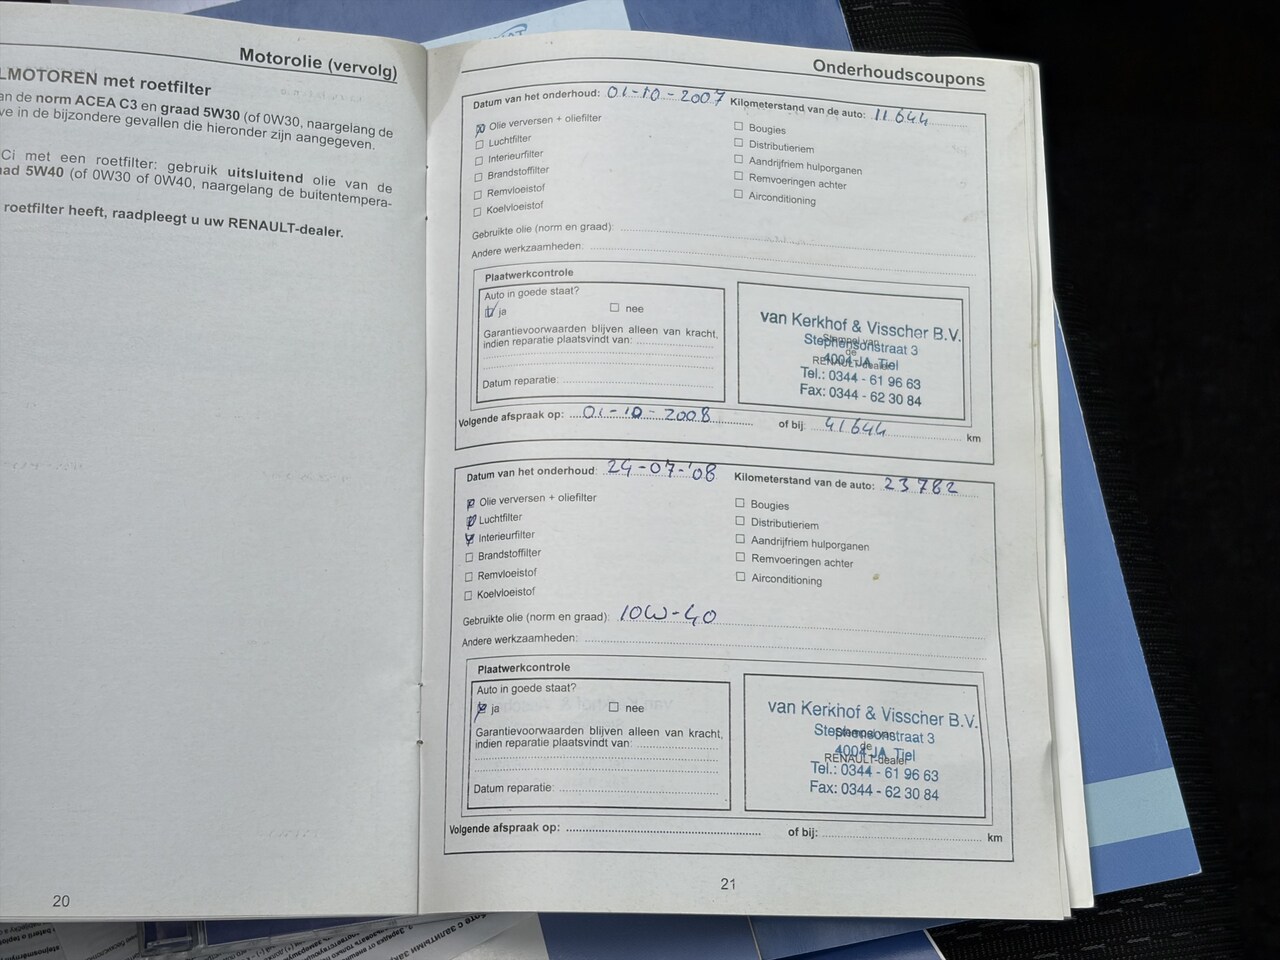 Motorolie (vervolg)
LMOTOREN met roetfilter
an de norm ACEA C3 en graad 5W30 (of 0W30, naargelang de
ve in de bijzondere gevallen die hieronder zijn aangegeven.
Ci met een roetfilter: gebruik uitsluitend olie van de
aad 5W40 (of 0W30 of 0W40, naargelang de buitentempera-
roetfilter heeft, raadpleegt u uw RENAULT-dealer.
20
Onderhoudscoupons
Datum van het onderhoud: 01-10-2007 Kilometerstand van de auto: 11644
Olie verversen + oliefilter
Luchtfilter
Interieurfilter
Brandstoffilter
Remvloeistof
Koelvloeistof
Bougies
Distributieriem
Aandrijfriem hulporganen
Remvoeringen achter
Airconditioning
Gebruikte olie (norm en graad):
Andere werkzaamheden:
Plaatwerkcontrole
Auto in goede staat?
ja nee
Garantievoorwaarden blijven alleen van kracht,
indien reparatie plaatsvindt van:
Datum reparatie:
van Kerkhof & Visscher B.V.
Stephensonstraat 3
4004 JA Tiel
Tel.: 0344 - 61 96 63
Fax: 0344 - 62 30 84
Stempel van
de
RENAULT-dealer
Volgende afspraak op: 01-10-2008 of bij: 41644 km
Datum van het onderhoud: 24-07-'08 Kilometerstand van de auto: 23782
Olie verversen + oliefilter
Luchtfilter
Interieurfilter
Brandstoffilter
Remvloeistof
Koelvloeistof
Bougies
Distributieriem
Aandrijfriem hulporganen
Remvoeringen achter
Airconditioning
Gebruikte olie (norm en graad): 10W-40
Andere werkzaamheden:
Plaatwerkcontrole
Auto in goede staat?
ja nee
Garantievoorwaarden blijven alleen van kracht,
indien reparatie plaatsvindt van:
Datum reparatie:
van Kerkhof & Visscher B.V.
Stephensonstraat 3
4004 JA Tiel
Tel.: 0344 - 61 96 63
Fax: 0344 - 62 30 84
Stempel van
de
RENAULT-dealer
Volgende afspraak op: of bij: km
21